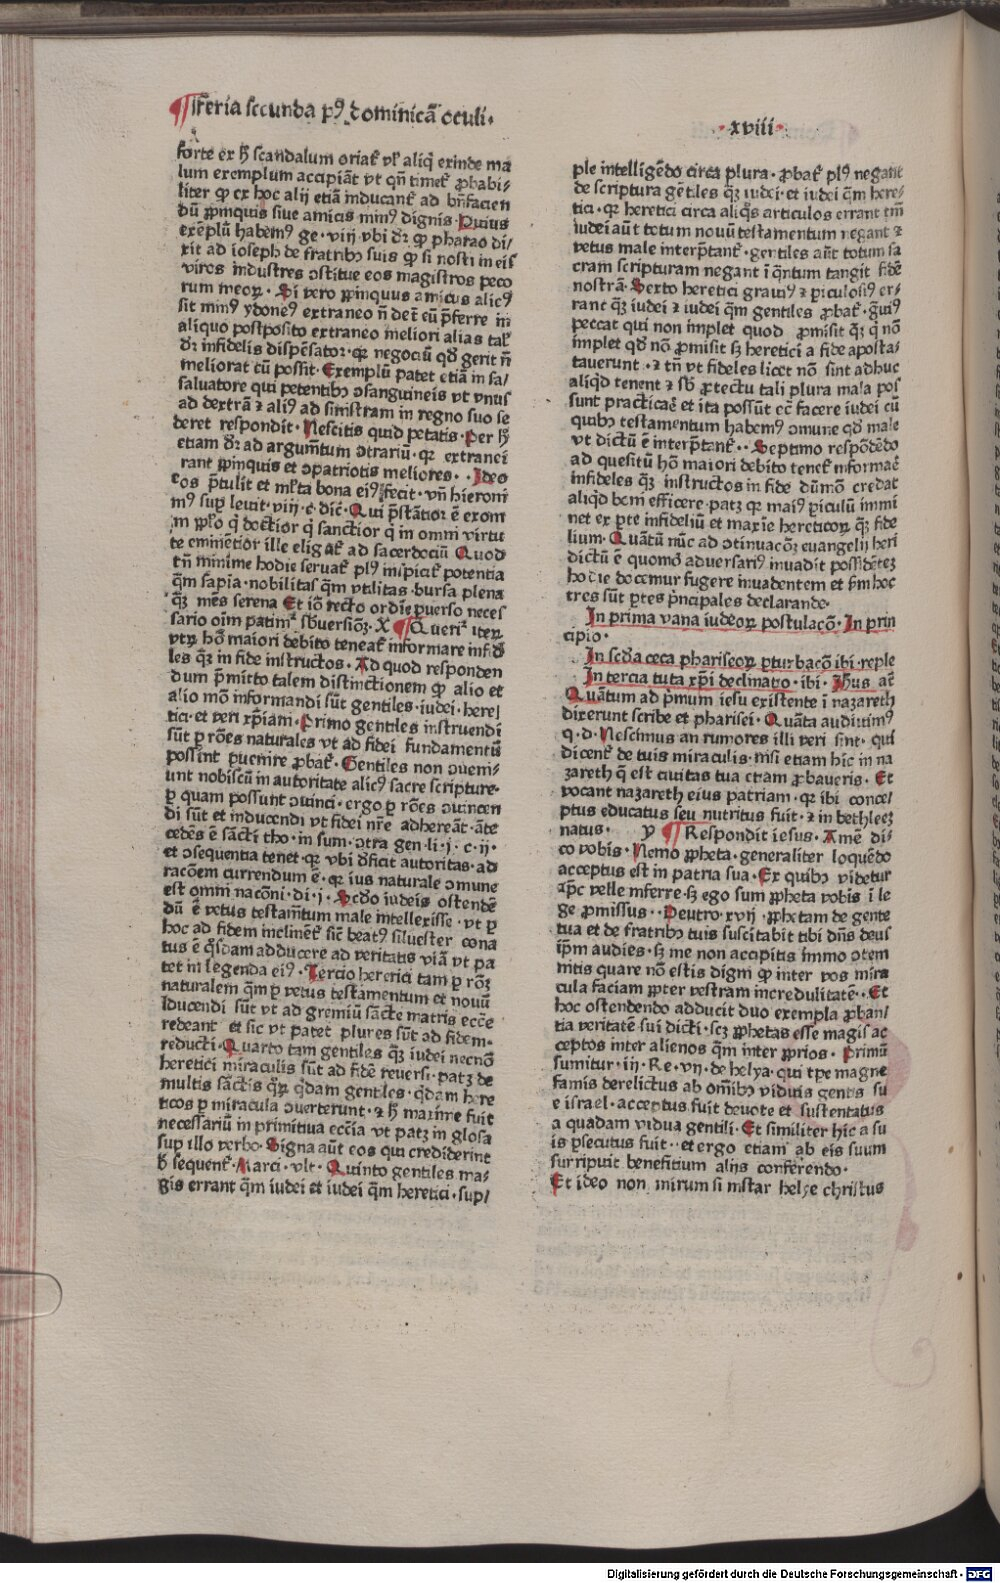 ¶ Feria secunda pꝰ dominicā oculi·
·xviii·
forte ex ħ scandalum oriat᷑ vl᷑ aliq̄ exinde ma
lum exemplum accipiāt vt qn̄ timet᷑ ꝓbabi/
liter ꝙ ex hoc alij etiā inducant᷑ ad bn̄facien
dū ꝓpinquis siue amicis minꝰ dignis· Huius
exēplū habemꝰ ge·viij·vbi dr̄ ꝙ pharao di/
xit ad ioseph de fratribꝰ suis ꝙ si nosti in eis
viros industres ↄstitue eos magistros peco
rum meoꝝ· Si vero ꝓpinquus amicus alicꝰ
sit minꝰ ydoneꝰ extraneo n̄ det̄ eū p̄ferre in
aliquo postposito extraneo meliori alias tal᷑
dr̄ infidelis dispēsator·qꝛ negociū qd̄ gerit n̄
meliorat cū possit· Exemplū patet etiā in sa/
luatore qui petentibꝰ ↄsanguineis vt vnus
ad dextrā ⁊ aliꝰ ad sinistram in regno suo se
deret respondit· Nescitis quid petatis· Per ħ
etiam dr̄ ad argum̄tum ↄtrariū· qꝛ extranei
rant ꝓpinquis et ↄpatriotis meliores· Ideo
eos p̄tulit et ml̄ta bona eiꝰ fecit· vn̄ hieroni
mꝰ suꝑ leuit·viij·c·dic̄· Qui p̄stātior ē ex om
ni pp̄lo q̄ doctior q̄ sanctior q̄ in omni virtu
te eminētior ille eligat᷑ ad sacerdociū Quod
tn̄ minime hodie seruat᷑ plꝰ inspicit᷑ potentia
q̄m sapia·nobilitas q̄m vtilitas·bursa plena
q̄ꝫ mēs serena Et iō recto ordīe ꝑuerso neces
sario oim patimꝰ sb̄uersiōꝫ· X ¶ Querit᷑ iteꝝ
vtꝝ hō maiori debito teneat᷑ informare infid̄
les q̄ꝫ in fide instructos· Ad quod responden
dum p̄mitto talem distinctionem ꝙ alio et
alio mō informandi sūt gentiles·iudei·here/
tici·et veri xp̄iani· Primo gentiles instruendi
sūt ꝑ rōes naturales vt ad fidei fundamentū
possint ꝑuenire ꝓbat᷑· Gentiles non ↄueni/
unt nobiscū in autoritate alicꝰ sacre scripture·
ꝑ quam possunt ↄuinci·ergo ꝑ rōes ↄuincen
di sūt et inducendi vt fidei nr̄e adhereāt·āte
cedēs ē sācti tho·in sum·ↄtra gen·li·j·c·ij·
et ↄsequentia tenet·qꝛ vbi dficit autoritas·ad
racōem currendum ē·qꝛ ius naturale ↄmune
est omni nacōni·di·j· Scdo iudeis ostendē
dū ē vetus testam̄tum male intellexisse·vt ꝑ
hoc ad fidem inclinēt᷑ sic̄ beatꝰ siluester cona
tus ē q̄sdam adducere ad veritatis viā vt pa
tet in legenda eiꝰ· Tercio heretici tam ꝑ rōꝫ
naturalem q̄m ꝑ vetus testamentum et nouū
Iducendi sūt vt ad gremiū sācte matris ecc̄e
redeant et sic vt patet plures sūt ad fidem·
reducti· Quarto tam gentiles q̄ꝫ iudei necnō
heretici miraculis sūt ad fidē reuersi·patꝫ de
multis sāctis q̄ꝝ q̄dam gentiles·q̄dam here
ticos ꝑ miracula ↄuerterunt·⁊ ħ maxime fuit
necessariū in primitiua ecc̄ia vt patꝫ in glosa
suꝑ illo verbo· Signa aūt eos qui crediderint
ħ sequent᷑· Marci·vlt· Quinto gentiles ma/
gis errant q̄m iudei et iudei q̄m heretici·supl/
ple intelligēdo circa plura· ꝓbat᷑ plꝰ negant
de scriptura gētiles q̄ꝫ iudei·et iudei q̄m here/
tici·qꝛ heretici circa aliq̄s articulos errant tm̄
iudei aūt totum nouū testamentum negant ⁊
vetus male interp̄tant᷑·gentiles aūt totum sa
cram scripturam negant ī q̄ntum tangit fidē
nostrā· Sexto heretici grauiꝰ ⁊ piculosiꝰ er/
rant q̄ꝫ iudei ⁊ iudei q̄m gentiles ꝓbat᷑·g̃uiꝰ
peccat qui non implet quod ꝓmisit q̄ꝫ q̄ nō
implet qd̄ nō ꝓmisit sꝫ heretici a fide aposta/
tauerunt·⁊ tn̄ vt fideles licet nō sint adhuc
aliqd tenent ⁊ sb̄ ꝓtectu tali plura mala pos
sunt practicar̄ et ita possūt ec̄ facere iudei cū
quibꝰ testamentum habemꝰ ↄmune qd̄ male
vt dictū ē interp̄tant᷑· Septimo respōdēdo
ad quesitū hō maiori debito tenet᷑ informar̄
infideles q̄ꝫ instructos in fide dūmō credat
aliqd boni efficere·patꝫ qꝛ maiꝰ piculū immi
net ex ꝑte infideliū et maxīe hereticoꝝ q̄ꝫ fide
lium· Quātū nūc ad ↄtinuacōꝫ euangelij heri
dictū ē quomō aduersariꝰ inuadit possidētes
hodie docemur fugere inuadentem et ꝓm hoc
tres sūt ꝑtes p̄ncipales declarande·
In prima vana iudeoꝝ postulacō· In prin
cipio·
In scd̄a ceca phariseoꝝ ꝑturbacō ibi·reple
In tercia tuta xp̄i declinatio·ibi· Ihus at̄
Quātum ad p̄mum iesu existente ī nazareth
dixerunt scribe et pharisei· Quāta audiuimꝰ
q·d· Nescimus an rumores illi veri sint· qui
dicent᷑ de tuis miraculis·nisi etiam hic in na
zareth q̄ est ciuitas tua etiam ꝓbaueris· Et
vocant nazareth eius patriam·qꝛ ibi concel
ptus educatus seu nutritus fuit·⁊ in bethleeꝫ
natus· y ¶ Respondit iesus· Amē di/
co vobis· Nemo ꝓpheta·generaliter loquēdo
acceptus est in patria sua· Ex quibꝰ videtur
xp̄c velle inferre·sꝫ ego sum ꝓpheta vobis ī le
ge ꝓmissus· Deutro·xvij·ꝓphetam de gente
tua et de fratribꝰ tuis suscitabit tibi dn̄s deus
ip̄m audies·sꝫ me non accipitis immo ↄtem
nitis quare nō estis digni ꝙ inter vos mira
cula faciam ꝓpter vestram incredulitatē· Et
hoc ostendendo adducit duo exempla ꝓban/
tia veritatē sui dicti·scꝫ ꝓphetas esse magis ac
ceptos inter alienos q̄m inter ꝓprios· Primū
sumitur·iij·Re·vij·de helya·qui tꝑe magne
famis derelictus ab om̄ibꝰ viduis gentis su
e israel·acceptus fuit deuote et sustentatus
a quadam vidua gentili· Et similiter hic a su
is ꝑsecutus fuit·et ergo etiam ab eis suum
surripuit benefitium alijs conferendo·
Et ideo non mirum si instar helye christus
Digitalisierung gefördert durch die Deutsche Forschungsgemeinschaft · DFG